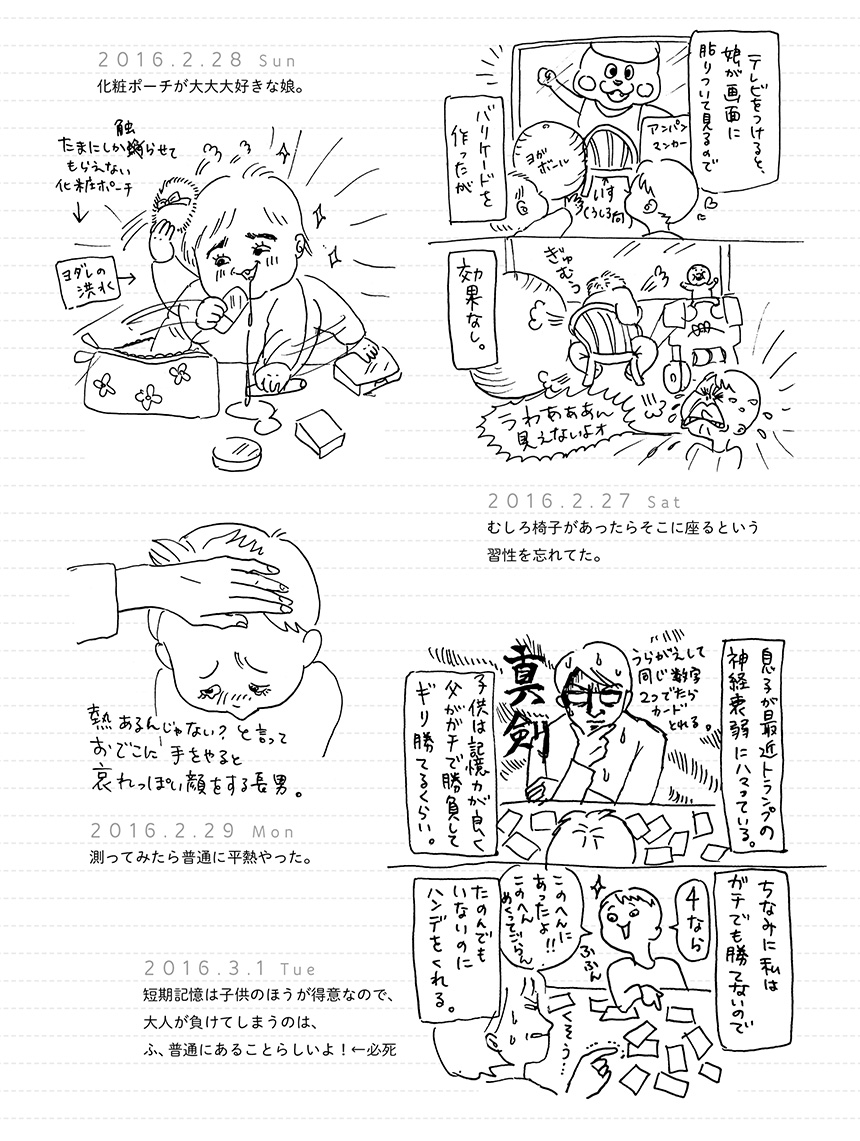 テレビをつけると、
娘が画面に
貼りついて見るので
バリケードを
作ったが
アンパン
マンカー
ヨガ
ボール
いす
(うしろ向)
効果なし。
ぎゅむっ
うわあああん
見えないよォ
2016.2.27 Sat
むしろ椅子があったらそこに座るという
習性を忘れてた。
2016.2.28 Sun
化粧ポーチが大大大好きな娘。
たまにしか触らせて
もらえない
化粧ポーチ
ヨダレの
洪水
熱あるんじゃない?と言って
おでこに手をやると
哀れっぽい顔をする長男。
2016.2.29 Mon
測ってみたら普通に平熱やった。
息子が最近トランプの
神経衰弱にハマっている。
うらがえして
同じ数字
2つでたら
カード
とれる。
真剣
子供は記憶力が良く
父がガチで勝負して
ギリ勝てるくらい。
ちなみに私は
ガチでも勝てないので
4なら
このへんに
あったよ!!
このへん
めくってごらん
ふふん
たのんでも
いないのに
ハンデをくれる。
くそう…
2016.3.1 Tue
短期記憶は子供のほうが得意なので、
大人が負けてしまうのは、
ふ、普通にあることらしいよ!←必死